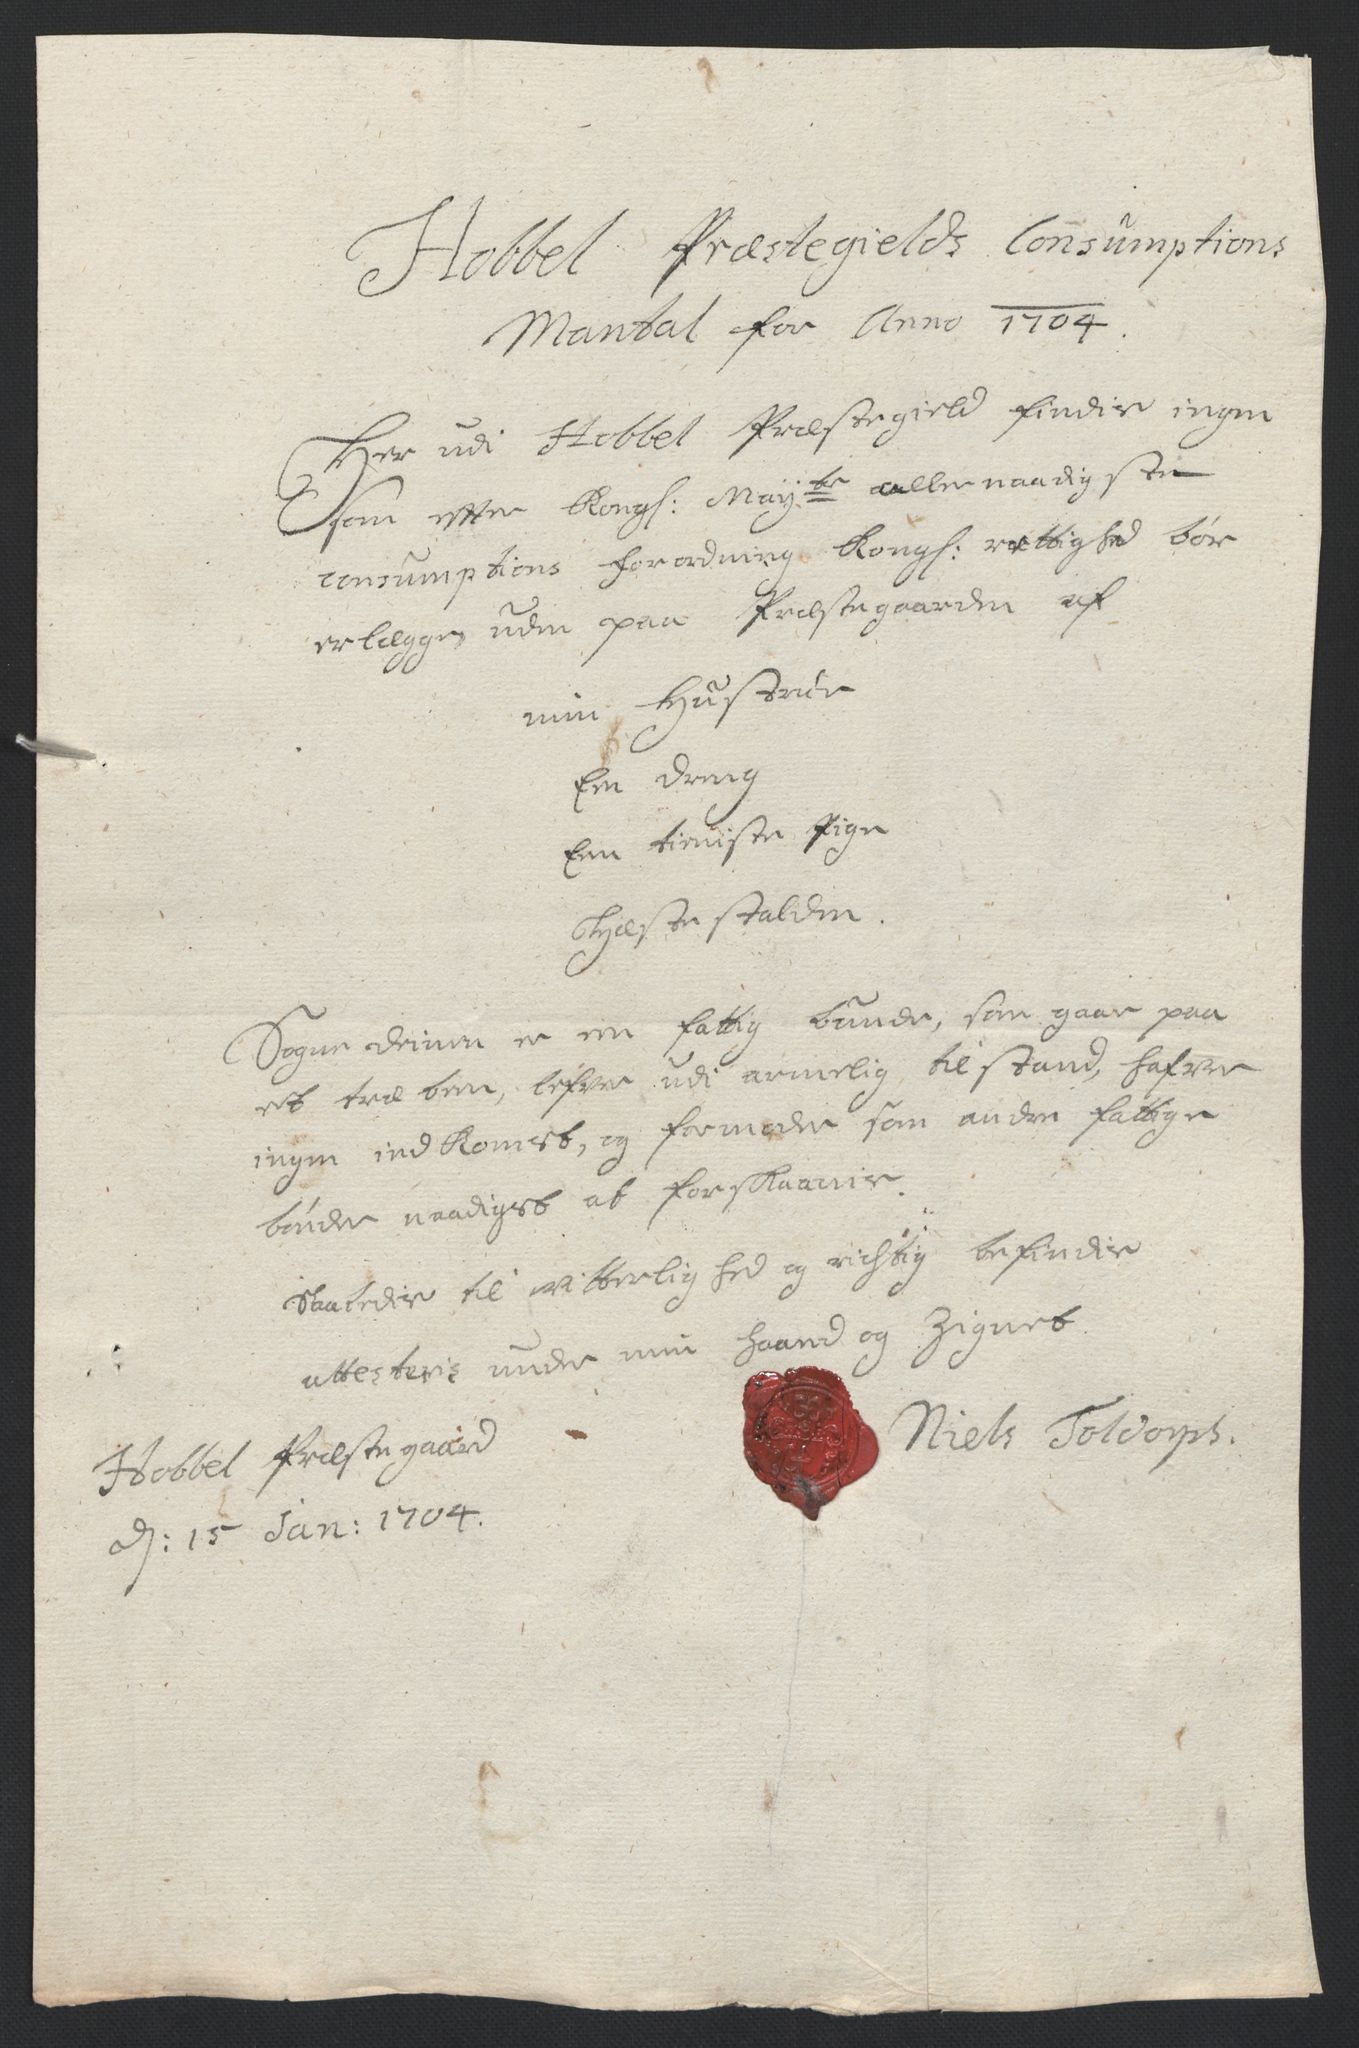 Hobbel Præstegields Consumptions
Mantal for Anno 1704.
Her udi Hobbel Præstegield findis ingen
som efter Kongl: Mayts allernaadigste
consumptions forordning Kongl: rettighed bör
erlægge, uden paa Præstegaarden af
min Hustrue
Een dreng
Een tieniste Pige
Hæste stalden.
Sogne deinen er en fattig bunde, som gaar paa
et træ been, lefver udi armelig tilstand, hafver
ingen ind Komst, og formoder som andre fattige
bönder naadigst at forskaanis.
Saaledis til vitterlighed og richtig befindis
attesteris under min haand og Zignet
Niels Toldorph.
Hobbel Præstegaard
d: 15 Jan: 1704.